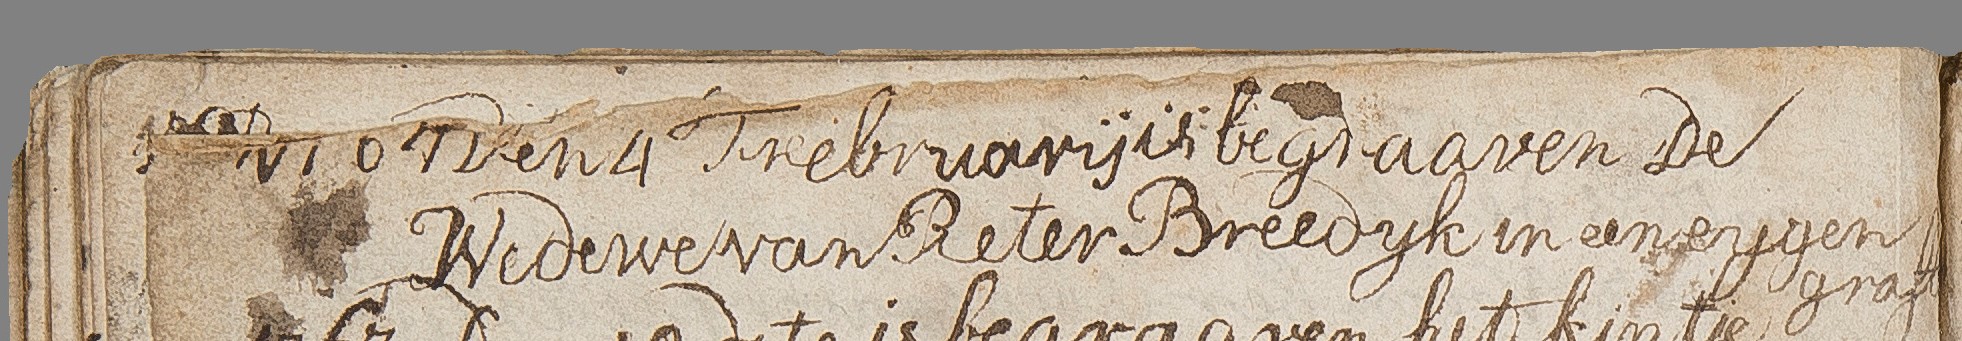 Den 4 Febrewarij is begraaven De
Wedewe van Peter Breedyk in een eygen
graft
dito is begraaven het kintie